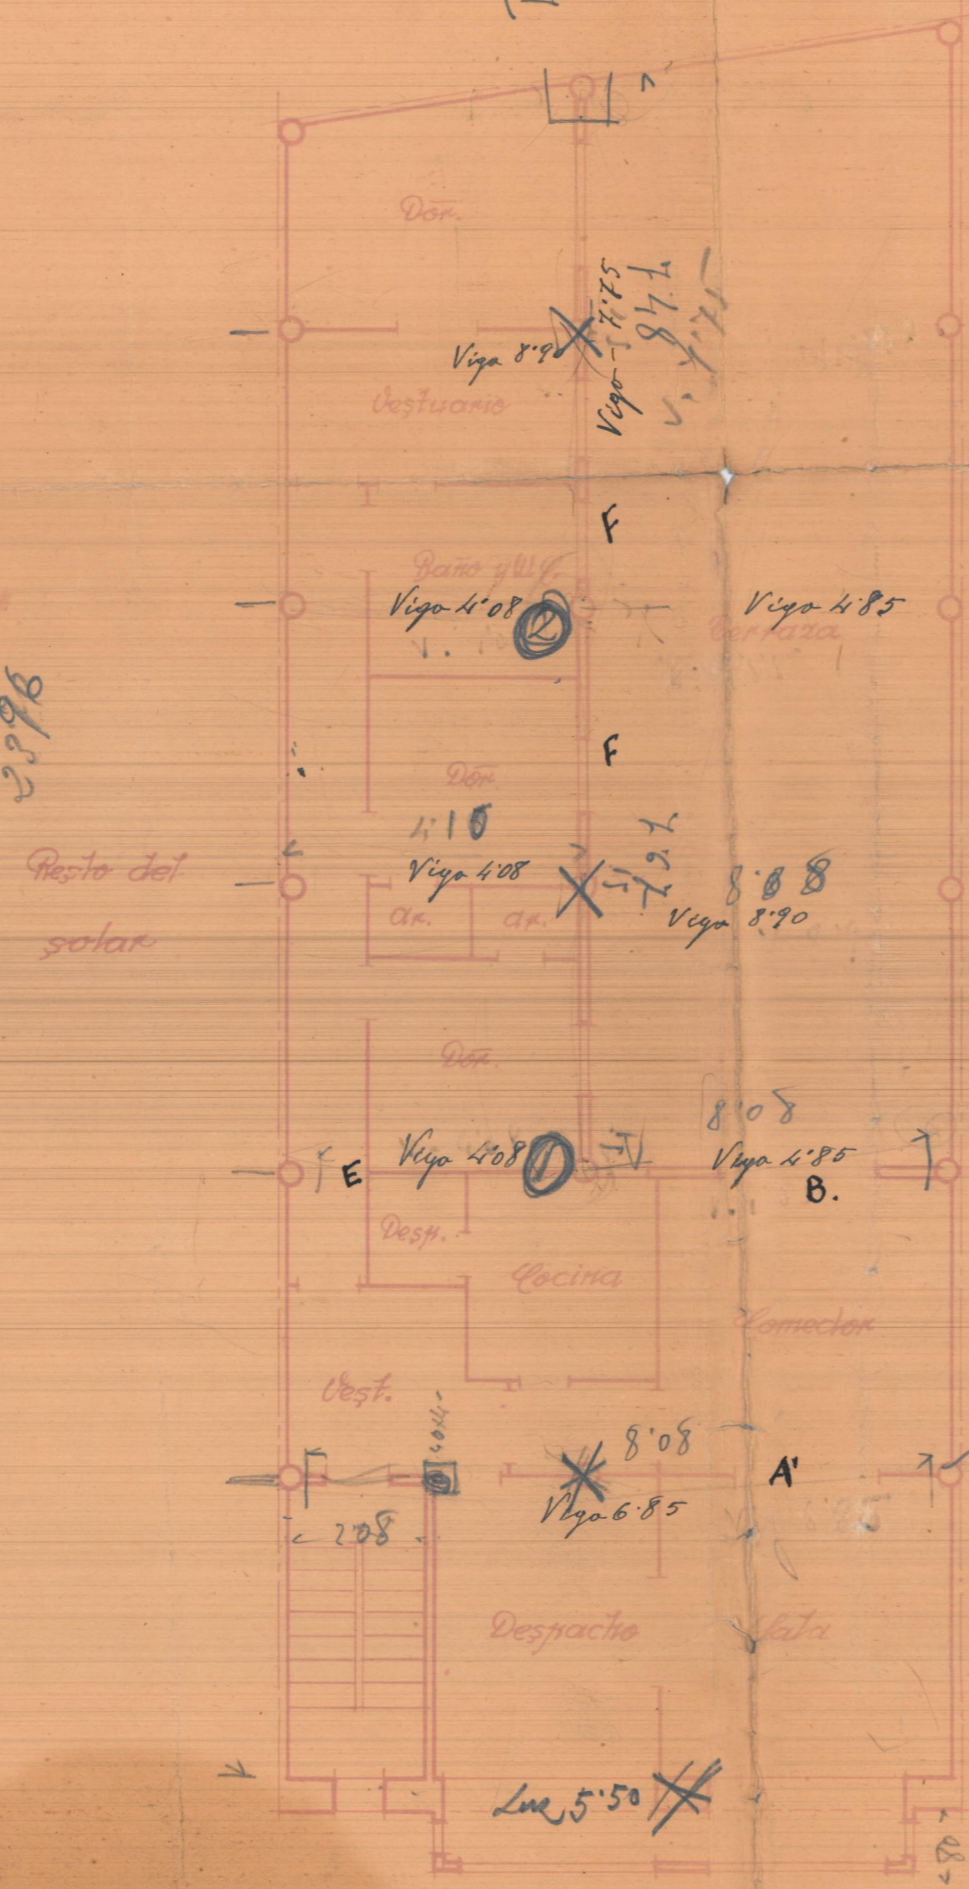 Dor.
Viga 7'75
7.48
Viga 8'90
Vestuario
F
Baño y W.C.
Viga 4'08
2
Viga 4'85
Terraza
F
Dor.
4'10
Viga 4'08
7.67
Viga 8'90
Resto del
solar
ar.
ar.
Dor.
8'08
Viga 4'08
1
Viga 4'85
E
B.
Desp.
Cocina
Comedor
Vest.
8'08
A'
Viga 6'85
2'08
Despacho
Sala
Luz 5'50